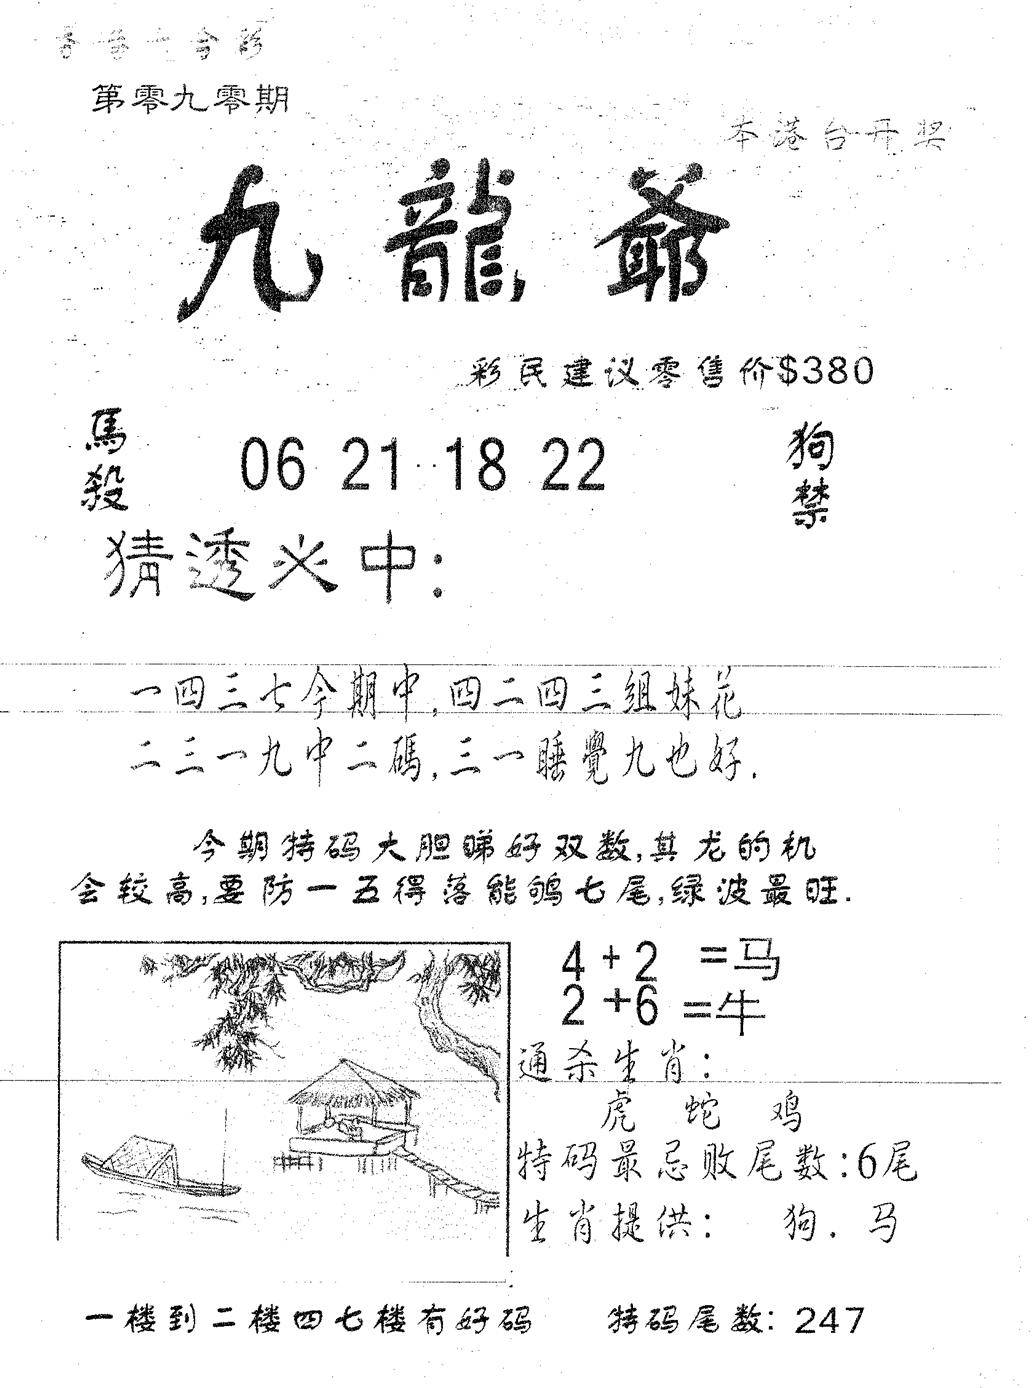 第零九零期
本港台开奖
九龍爺
彩民建议零售价$380
馬殺
06 21 18 22
狗禁
猜透必中:
一四三七今期中,四二四三組妹花
二三一九中二碼,三一睡覺九也好.
今期特码大胆睇好双数,其龙的机
会较高,要防一五得落能鸲七尾,绿波最旺.
4+2 =马
2+6 =牛
通杀生肖:
虎 蛇 鸡
特码最忌败尾数:6尾
生肖提供: 狗.马
一楼到二楼四七楼有好码 特码尾数: 247